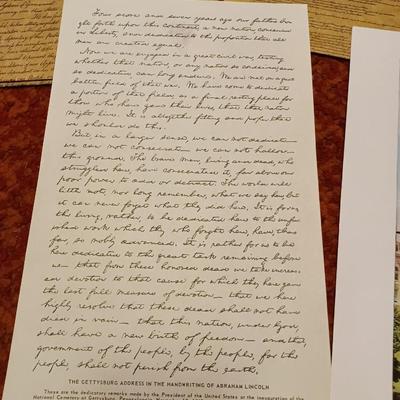 Four score and seven years ago our fathers brought
forth upon this continent, a new nation, conceived
in Liberty, and dedicated to the proposition that all
men are created equal.
Now we are engaged in a great civil war, testing
whether that nation, or any nation so conceived and
so dedicated can long endure. We are met on a great
battle field of that war. We have come to dedicate
a portion of that field, as a final resting place for
those who here gave their lives, that that nation
might live. It is altogether fitting and proper that
we should do this.
But in a larger sense, we can not dedicate—
we can not consecrate— we can not hallow—
this ground. The brave men, living and dead, who
struggled here, have consecrated it, far above our
poor power to add or detract. The world will
little note, nor long remember, what we say here, but
it can never forget what they did here. It is for us,
the living, rather, to be dedicated here to the unfin-
ished work which they who fought here, have, thus
far, so nobly advanced. It is rather for us to be
here dedicated to the great task remaining before
us— that from these honored dead we take increas-
ed devotion to that cause for which they here gave
the last full measure of devotion— that we here
highly resolve that these dead shall not have
died in vain— that this nation, under God,
shall have a new birth of freedom— and that,
government of the people, by the people, for the
people, shall not perish from the earth.
THE GETTYSBURG ADDRESS IN THE HANDWRITING OF ABRAHAM LINCOLN
These are the dedicatory remarks made by the President of the United States at the inauguration of the
National Cemetery at Gettysburg, Pennsylvania, November 19,